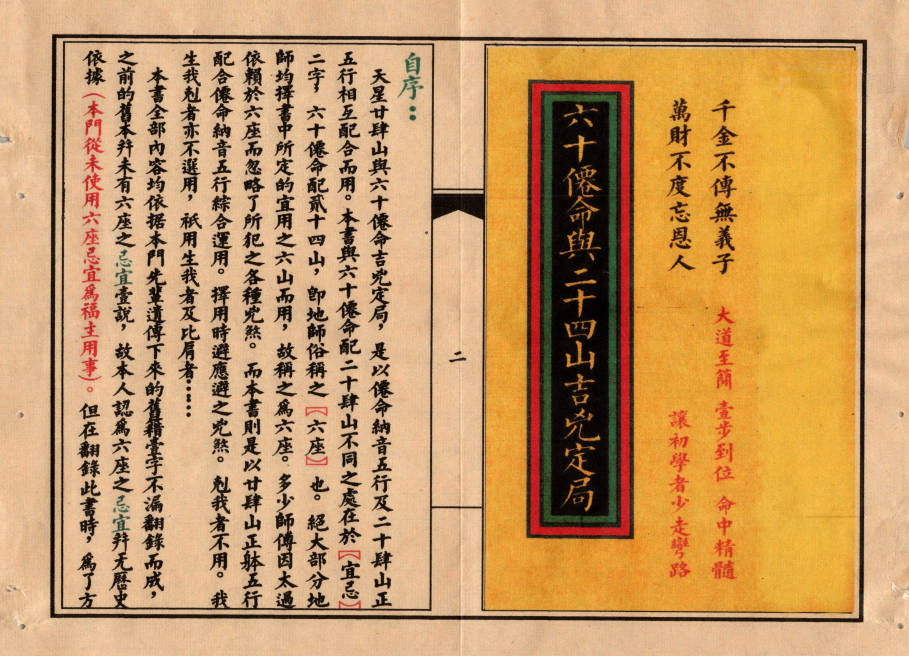 千金不傳無義子
萬財不度忘恩人
大道至簡 壹步到位 命中精髓
讓初學者少走彎路
六十僊命與二十四山吉兇定局
二
自序：
天星廿肆山與六十僊命吉兇定局，是以僊命納音五行及二十肆山正
五行相互配合而用。本書與六十僊命配二十肆山不同之處在於【宜忌】
二字，六十僊命配貳十四山，卽地師俗稱之【六座】也。絕大部分地
師均擇書中所定的宜用之六山而用，故稱之爲六座。多少師傅因太過
依賴於六座而忽略了所犯之各種兇煞。而本書則是以廿肆山正躰五行
配合僊命納音五行綜合運用。擇用時避應避之兇煞。剋我者不用。我
生我剋者亦不選用，衹用生我者及比肩者……
本書全部內容均依据本門先輩遺傳下來的舊籍壹字不漏翻錄而成，
之前的舊本幷未有六座之忌宜壹說，故本人認爲六座之忌宜幷无曆史
依據（本門從未使用六座忌宜爲福主用事）。但在翻錄此書時，爲了方